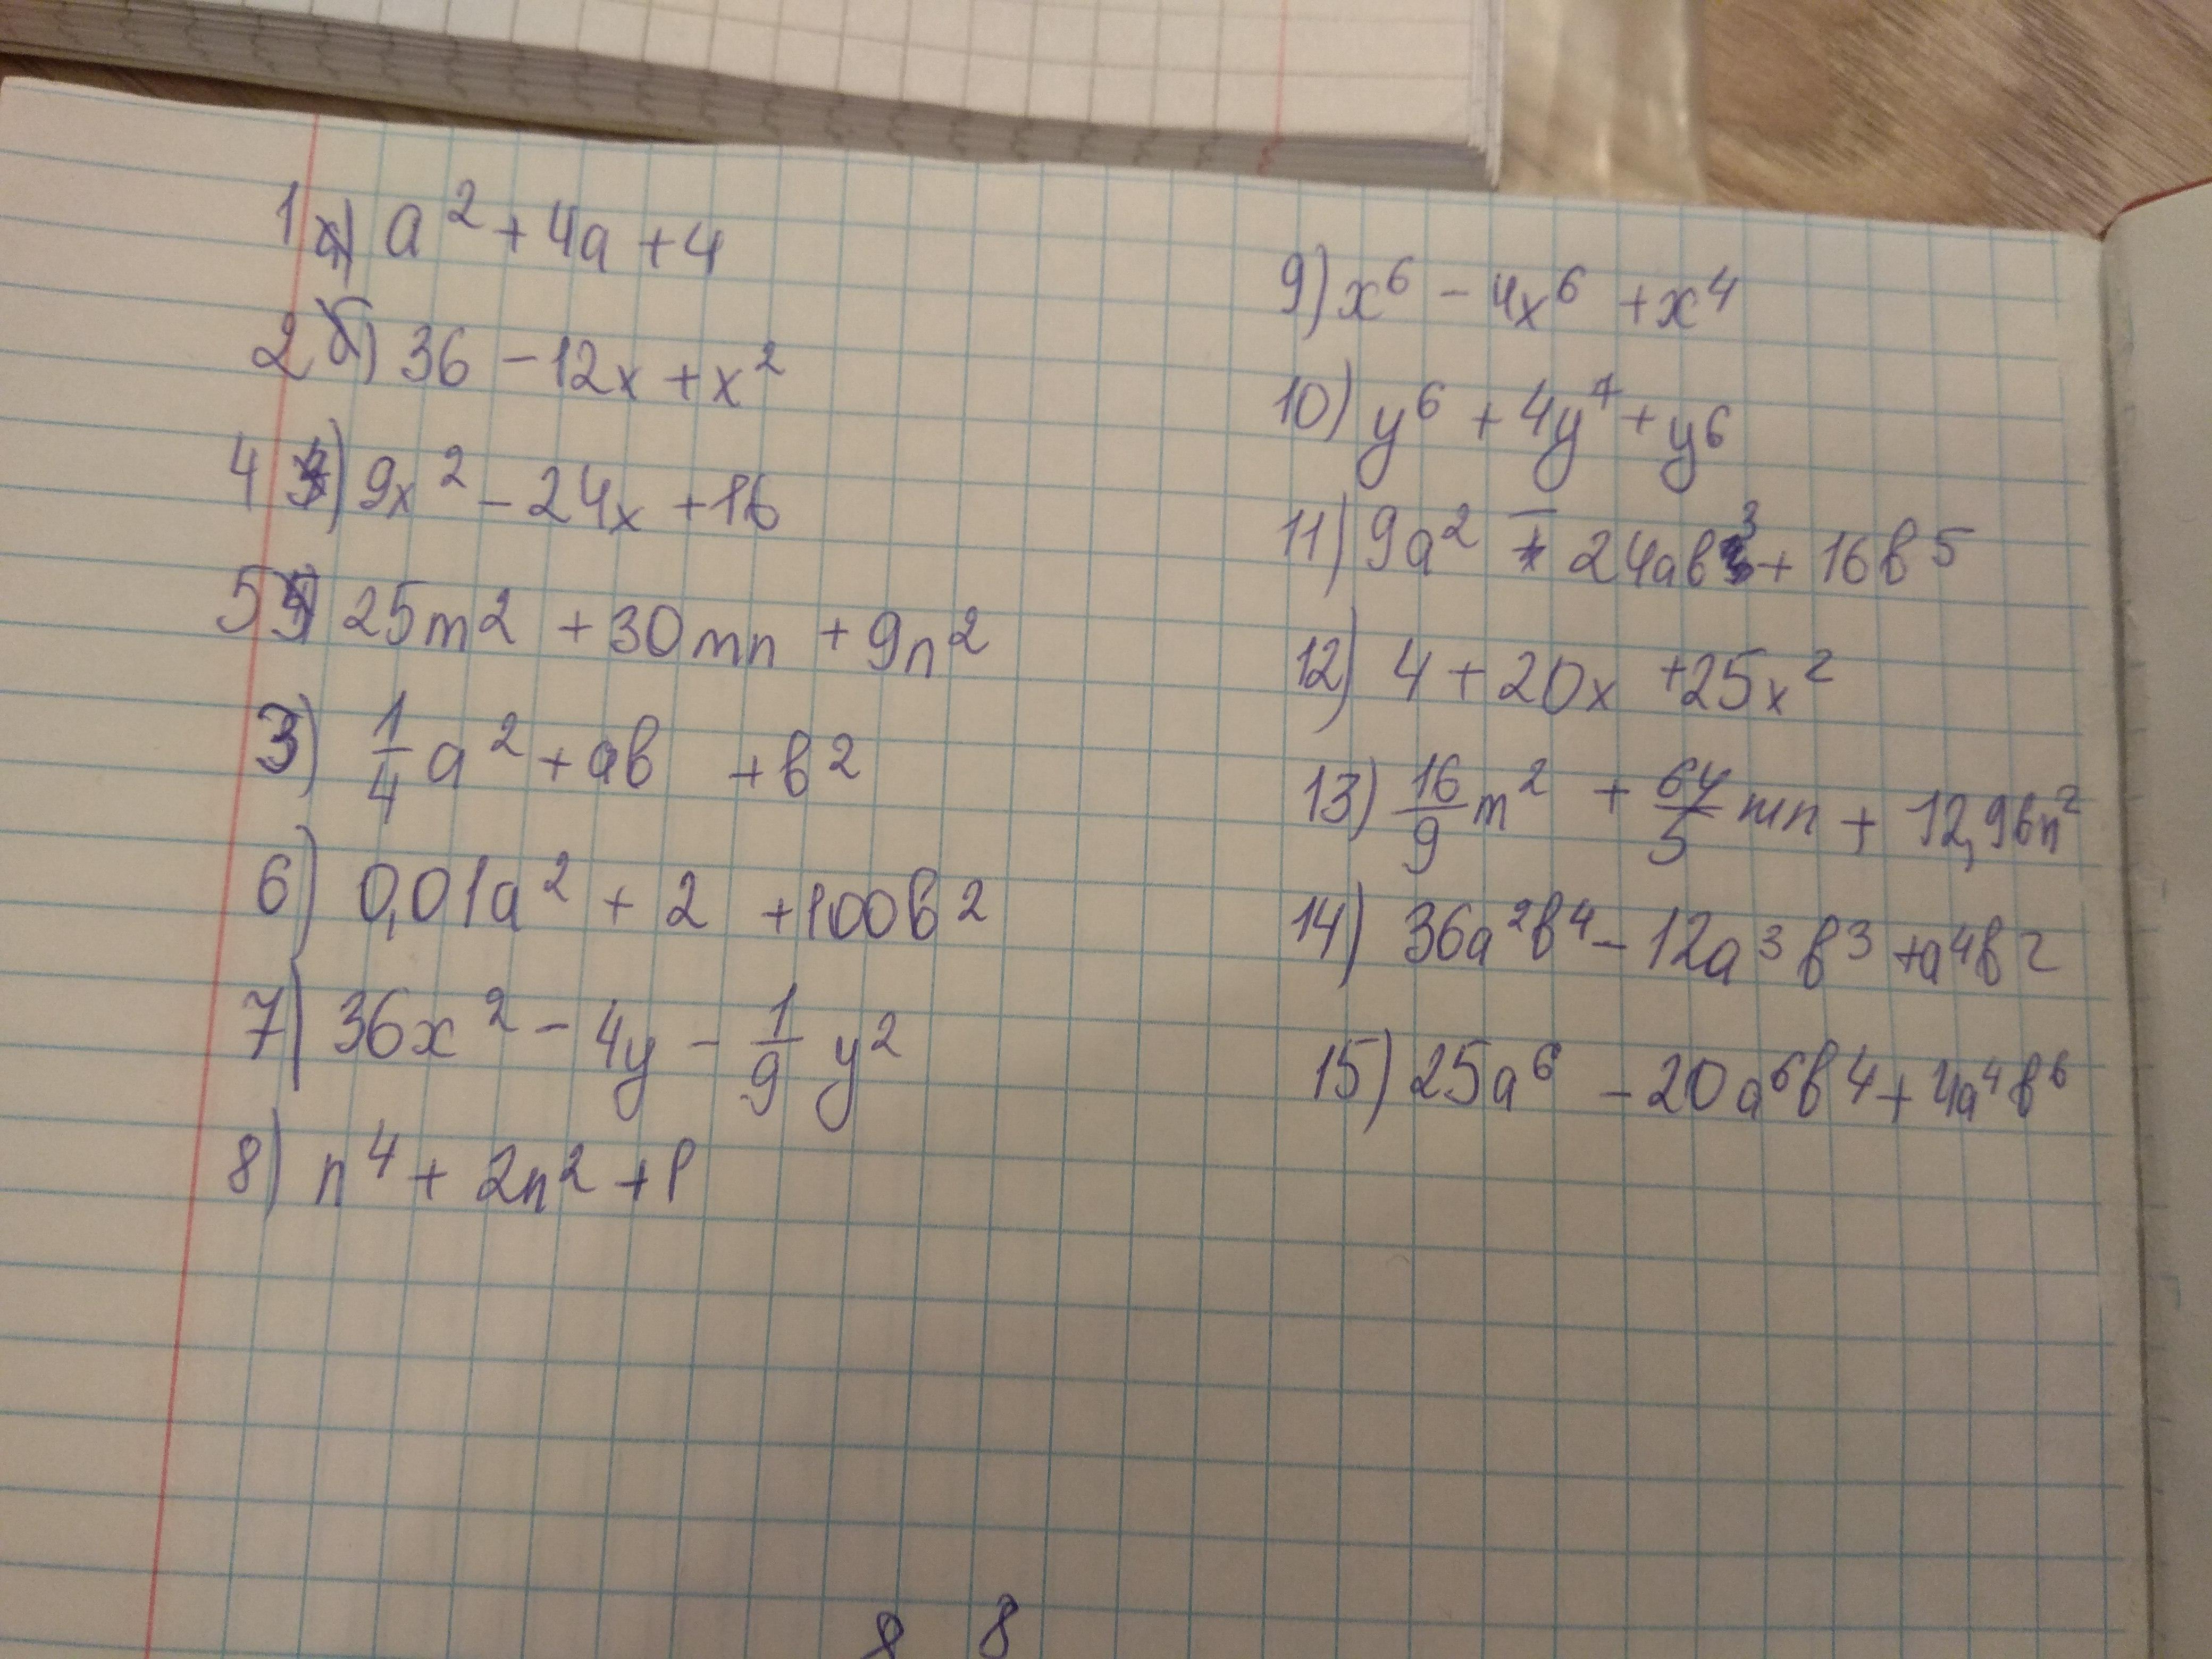 1) a² + 4a + 4
2) 36 - 12x + x²
4) 9x² - 24x + 16
5) 25m² + 30mn + 9n²
3) 1/4 a² + aв + в²
6) 0,01a² + 2 + 100в²
7) 36x² - 4y - 1/9 y²
8) n⁴ + 2n² + 1
9) x⁶ - 4x⁶ + x⁴
10) y⁶ + 4y⁷ + y⁶
11) 9a² - 24aв³ + 16в⁵
12) 4 + 20x + 25x²
13) 16/9 m² + 64/5 mn + 12,96n²
14) 36a²в⁴ - 12a³в³ + a⁴в²
15) 25a⁶ - 20a⁶в⁴ + 4a⁴в⁶
8 8